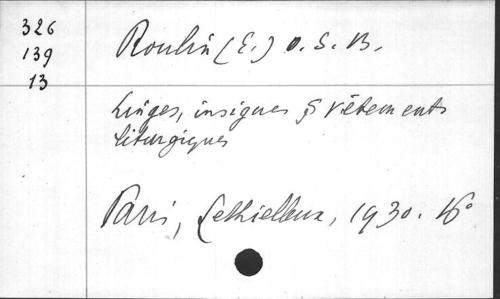 326
139
13
Roulin (E.) O. S. B.
Linges, insignes & Vêtements
liturgiques
Paris, Lethielleux, 1930. 16°